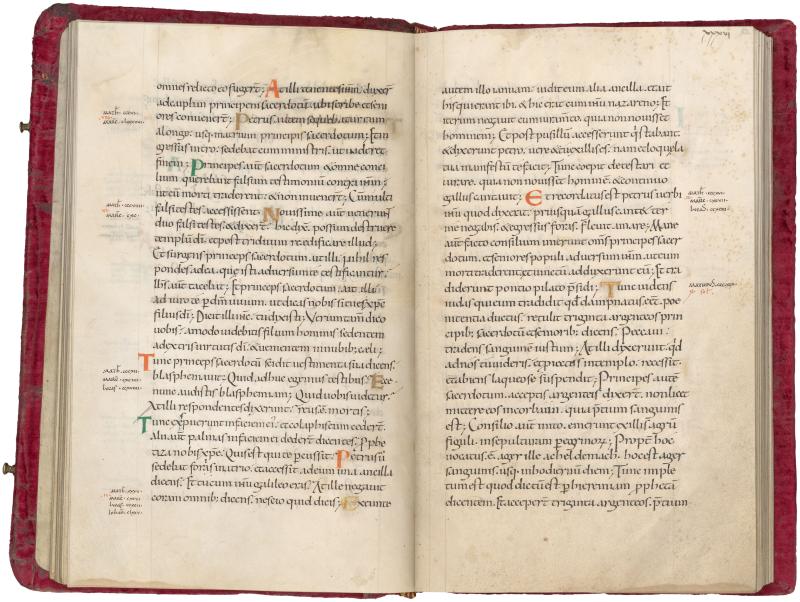 omnes relicto eo fugert̄; At illi tenentes iħm duxer̄
ad caiphan principem sacerdotū ubi scribe et seni
ores convenerant; Petrus autem sequebatur eum
a longe usq; in atrium principis sacerdotum; Et in
gressus intro sedebat cum ministris ut uideret
finem; Principes aut̄ sacerdotum & omne conci
lium querebant falsum testimoniū contra iħm
ut eum morti traderent & non inuener̄; Cum multi
falsi testes accessissent; Nouissime aut̄ uenerunt
duo falsi testes & dixer̄t; hic dix̄ possum destruere
templum dī et post triduum reedificare illud;
Et surgens princeps sacerdotum ait illi; nihil res
pondes ad ea que isti aduersum te testificantur;
Iħs aut̄ tacebat; Et princeps sacerdotum ait illi
adiuro te per dm̄ uiuum ut dicas nobis si tu es xp̄c
filius dī; Dicit illi iħc tu dixisti; Verumtam̄ dico
uobis amodo uidebitis filium hominis sedentem
ad dextris uirtutis dī & uenientem in nubib; cæli;
Tunc princeps sacerdotū scidit uestimenta sua dicens
blasphemauit; Quid adhuc egemus testibus; Ecce
nunc audistis blasphemiam; Quid uobis uidetur;
At illi respondentes dixerunt; reus ē mortis;
Tunc expuerunt in faciem ei' et colaphis eum ceder̄t
alii aut̄ palmas in faciem ei dedert̄ dicentes; Pphe
tiza nobis xp̄e; Quis est qui te percussit; Petrus ū
sedebat foris in atrio et accessit ad eum una ancilla
dicens; Et tu cum iħu galileo eras; At ille negauit
coram omnib; dicens; nescio quid dicis; Exeunte
xxxvi
autem illo ianuam uidit eum alia ancilla et ait
his qui erant ibi; & hic erat cum iħu nazareno; Et
iterum negauit cum iuram̄to quia non nouisset
hominem; Et post pusillū accesserunt q̄ stabant
& dixerunt petro; uere & tu ex illis es; nam & loquela
tua manifestū te facit; Tunc coepit detestari et
iurare quia non nouisset hominē; & continuo
gallus cantauit; Et recordatus est petrus uerbi
iħu quod dixerat; priusquā gallus cantet ter
me negabis & egressus foras fleuit amare; Mane
aut̄ facto consilium inierunt om̄s principes sacer
dotum et seniores populi aduersum iħm ut eum
morti traderent et uinctū adduxerunt eū; Et tra
diderunt pontio pilato p̄sidi; Tunc uidens
iudas qui eum tradidit qđ dampnatus eēt poe
nitentia ductus retulit triginta argenteos prin
cipib; sacerdotū & seniorib; dicens; Peccaui
tradens sanguinē iustum; At illi dixerunt qđ
ad nos tu uideris et proiectis in templo recessit
et abiens laqueo se suspendit; Principes aut̄
sacerdotum acceptis argenteis dixer̄t; non licet
mittere eos in corban̄ quia p̄tium sanguinis
est; Consilio aut̄ inito emerunt ex illis agrū
figuli in sepulturam peregrinor̄; Propt̄ hoc
uocatus ē ager ille acheldemach hoc est ager
sanguinis usq; in hodiernū diem; Tunc imple
tum est quod dictū est p hieremiam pphetā
dicentem; Et accepert̄ triginta argenteos p̄tium